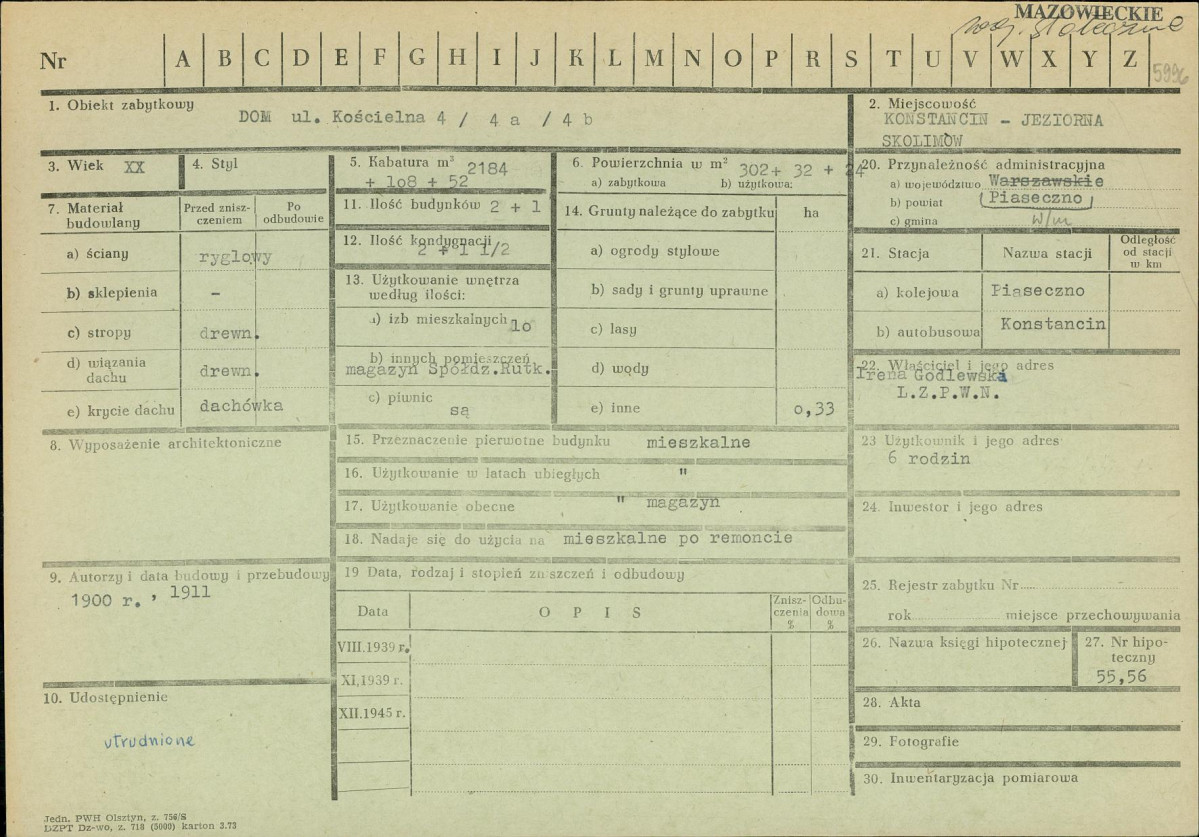 MAZOWIECKIE
woj. stołeczne
Nr A B C D E F G H I J K L M N O P R S T U V W X Y Z 5996
1. Obiekt zabytkowy
DOM ul. Kościelna 4 / 4 a / 4 b
2. Miejscowość
KONSTANCIN - JEZIORNA
SKOLIMÓW
3. Wiek XX
4. Styl
5. Kabatura m³ 2184
+ 108 + 52
6. Powierzchnia w m² 302+ 32 + 24
a) zabytkowa b) użytkowa:
20. Przynależność administracyjna
a) województwo Warszawskie
b) powiat Piaseczno
c) gmina w/m
7. Materiał budowlany
Przed zniszczeniem
Po odbudowie
a) ściany ryglowy
b) sklepienia -
c) stropy drewn.
d) wiązania dachu drewn.
e) krycie dachu dachówka
11. Ilość budynków 2 + 1
12. Ilość kondygnacji
2 + 1 1/2
13. Użytkowanie wnętrza
według ilości:
a) izb mieszkalnych 10
b) innych pomieszczeń
magazyn Spółdz.Rutk.
c) piwnic
są
14. Grunty należące do zabytku ha
a) ogrody stylowe
b) sady i grunty uprawne
c) lasy
d) wody
e) inne 0,33
21. Stacja Nazwa stacji Odległość od stacji w km
a) kolejowa Piaseczno
b) autobusowa Konstancin
22. Właściciel i jego adres
Irena Godlewska
L.Z.P.W.N.
8. Wyposażenie architektoniczne
15. Przeznaczenie pierwotne budynku mieszkalne
16. Użytkowanie w latach ubiegłych "
17. Użytkowanie obecne " magazyn
18. Nadaje się do użycia na mieszkalne po remoncie
23 Użytkownik i jego adres
6 rodzin
24. Inwestor i jego adres
9. Autorzy i data budowy i przebudowy
1900 r. , 1911
19 Data, rodzaj i stopień zniszczeń i odbudowy
Data OPIS Zniszczenia % Odbudowa %
VIII.1939 r.
XI.1939 r.
XII.1945 r.
25. Rejestr zabytku Nr
rok miejsce przechowywania
26. Nazwa księgi hipotecznej
27. Nr hipoteczny
55,56
10. Udostępnienie
utrudnione
28. Akta
29. Fotografie
30. Inwentaryzacja pomiarowa
Jedn. PWH Olsztyn, z. 756/S
DZPT Dz-wo, z. 718 (5000) karton 3.73